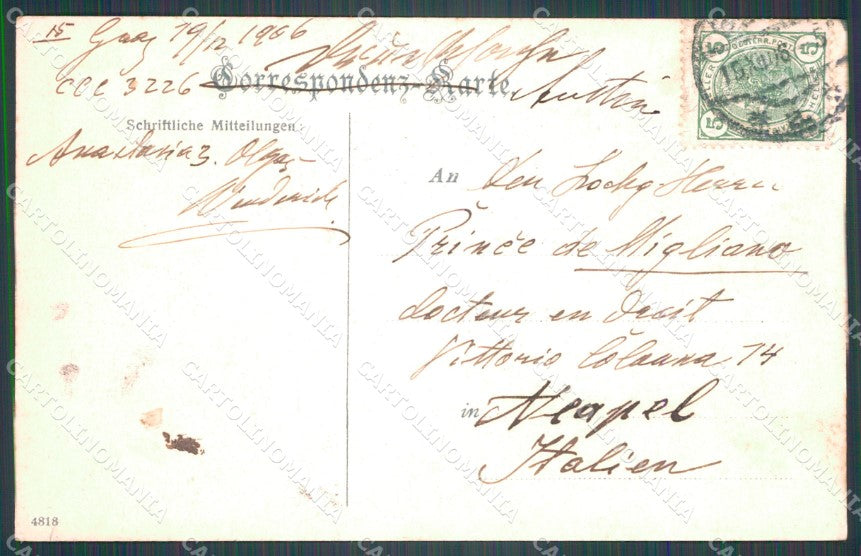 15 Graz 19/12 1906
CCC 3226
Correspondenz-Karte.
Schriftliche Mitteilungen:
Anastasia 3. Olga
An den Hochg Herrn
Prince de Migliano
docteur en droit
Vittorio Colonna 14
in Neapel
Italien
4818
5 5
5 5
CARTOLINOMANIA